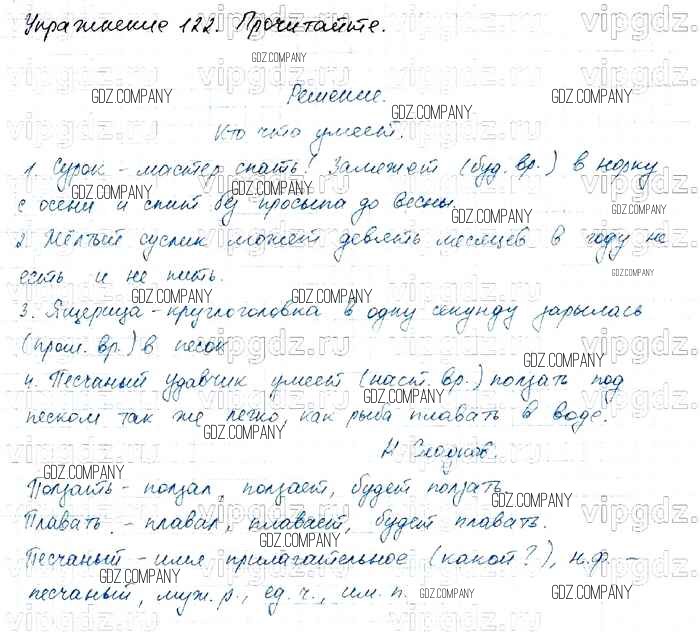 Упражнение 122. Прочитайте.
Решение.
Кто что умеет.
1. Сурок - мастер спать! Заляжет (буд. вр.) в норку
с осени и спит без просыпа до весны.
2. Жёлтый суслик может девять месяцев в году не
есть и не пить.
3. Ящерица-круглоголовка в одну секунду зарылась
(прош. вр.) в песок.
4. Песчаный удавчик умеет (наст. вр.) ползать под
песком так же легко, как рыба плавать в воде.
Н. Сладков.
Ползать - ползал, ползает, будет ползать.
Плавать - плавал, плавает, будет плавать.
Песчаный - имя прилагательное (какой?), н.ф. -
песчаный, муж. р., ед. ч., им. п.
GDZ.COMPANY
vipgdz.ru